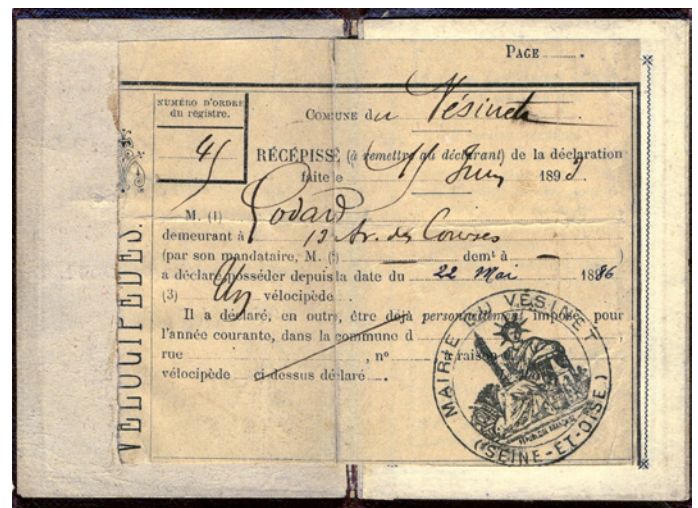 PAGE
NUMÉRO D'ORDRE
du régistre.
45
COMUNE du Vésinet
RÉCÉPISSÉ (à remettre au déclarant) de la déclaration
faite le 15 Juin 1893.
M. (1) Godard
demeurant à 13 Av. des Courses
(par son mandataire, M. ( ) demt à )
a déclaré posséder depuis la date du 22 Mai 1886
(3) Un vélocipède
Il a déclaré, en outre, être déjà personnellement imposé, pour
l'année courante, dans la commune d
rue , n° , à raison
vélocipède ci-dessus déclaré
VÉLOCIPÈDES.
MAIRIE DU VÉSINET
(SEINE-ET-OISE)